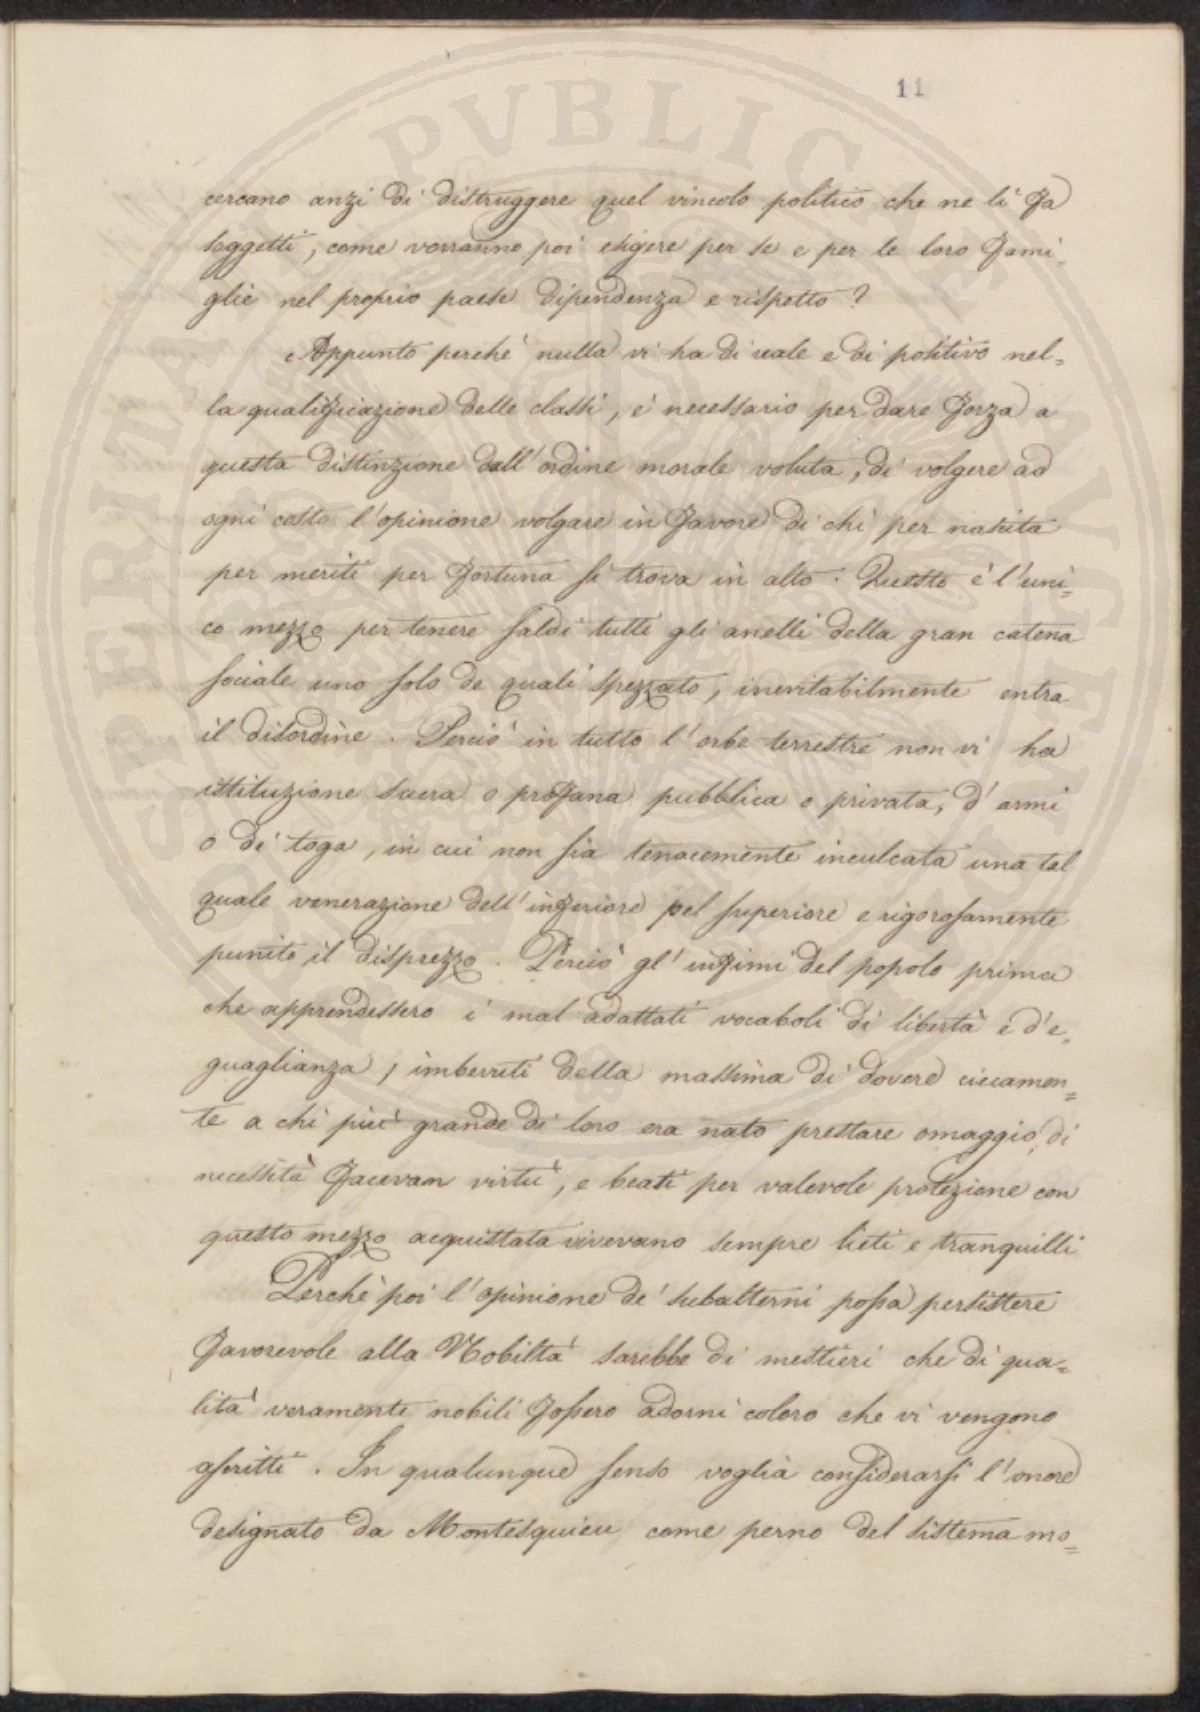 11
cercano anzi di distruggere quel vincolo politico che ne li fa
soggetti, come vorranno poi esigere per se e per le loro fami=
glie nel proprio paese dipendenza e rispetto?
Appunto perchè nulla vi ha di reale e di positivo nel=
la qualificazione delle classi, è necessario per dare forza a
questa distinzione dall'ordine morale voluta, di volgere ad
ogni costo l'opinione volgare in favore di chi per nascita
per meriti per fortuna si trova in alto. Questo è l'uni=
co mezzo per tenere saldi tutti gli anelli della gran catena
sociale uno solo de quali spezzato, inevitabilmente entra
il disordine. Perciò in tutto l'orbe terrestre non vi ha
istituzione sacra o profana pubblica o privata, d'armi
o di toga, in cui non sia tenacemente inculcata una tal
quale venerazione dell'inferiore pel superiore e rigorosamente
punito il disprezzo. Perciò gl'infimi del popolo prima
che apprendessero i mal adattati vocaboli di libertà e d'e=
guaglianza, imbevuti della massima di dovere ciecamen=
te a chi più grande di loro era nato prestare omaggio, di
necessità facevan virtù, e beati per valevole protezione con
questo mezzo acquistata vivevano sempre lieti e tranquilli
Perchè poi l'opinione de' subalterni possa persistere
favorevole alla Nobiltà sarebbe di mestieri che di qua=
lità veramente nobili fossero adorni coloro che vi vengono
ascritti. In qualunque senso voglia considerarsi l'onore
designato da Montesquieu come perno del sistema mo=